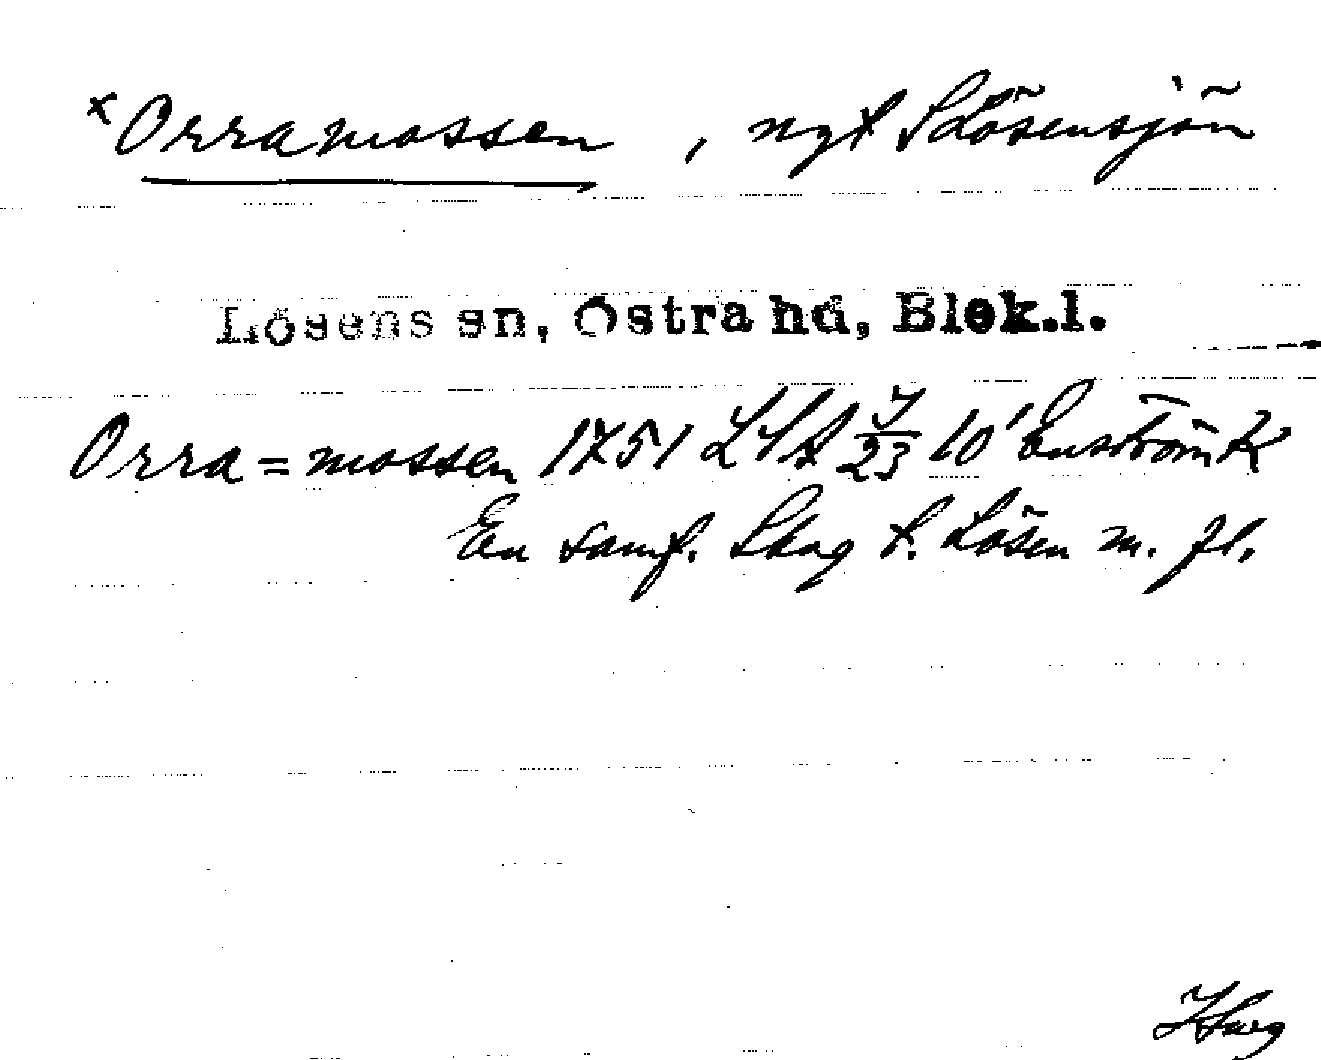 x Orramossen, nyt S Lösensjön
Lösens sn, Östra hd, Blek.l.
Orra=mossen 1751 LSA 7/23 10' Enström K
En samf. Skog t. Lösen m. fl.